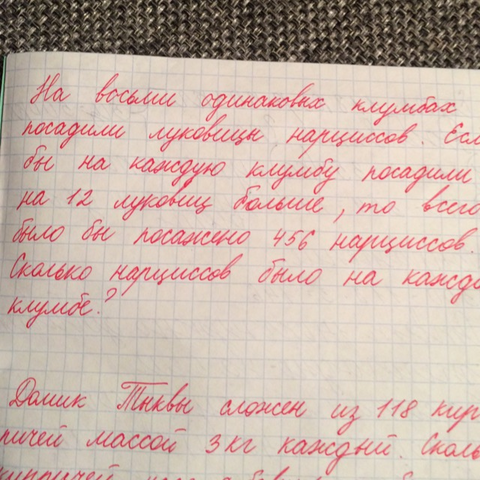 На восьми одинаковых клумбах
посадили луковицы нарциссов. Если
бы на каждую клумбу посадили
на 12 луковиц больше, то всего
было бы посажено 456 нарциссов.
Сколько нарциссов было на каждо
клумбе?
Домик Тыквы сложен из 118 кир
пичей массой 3 кг каждый. Сколь